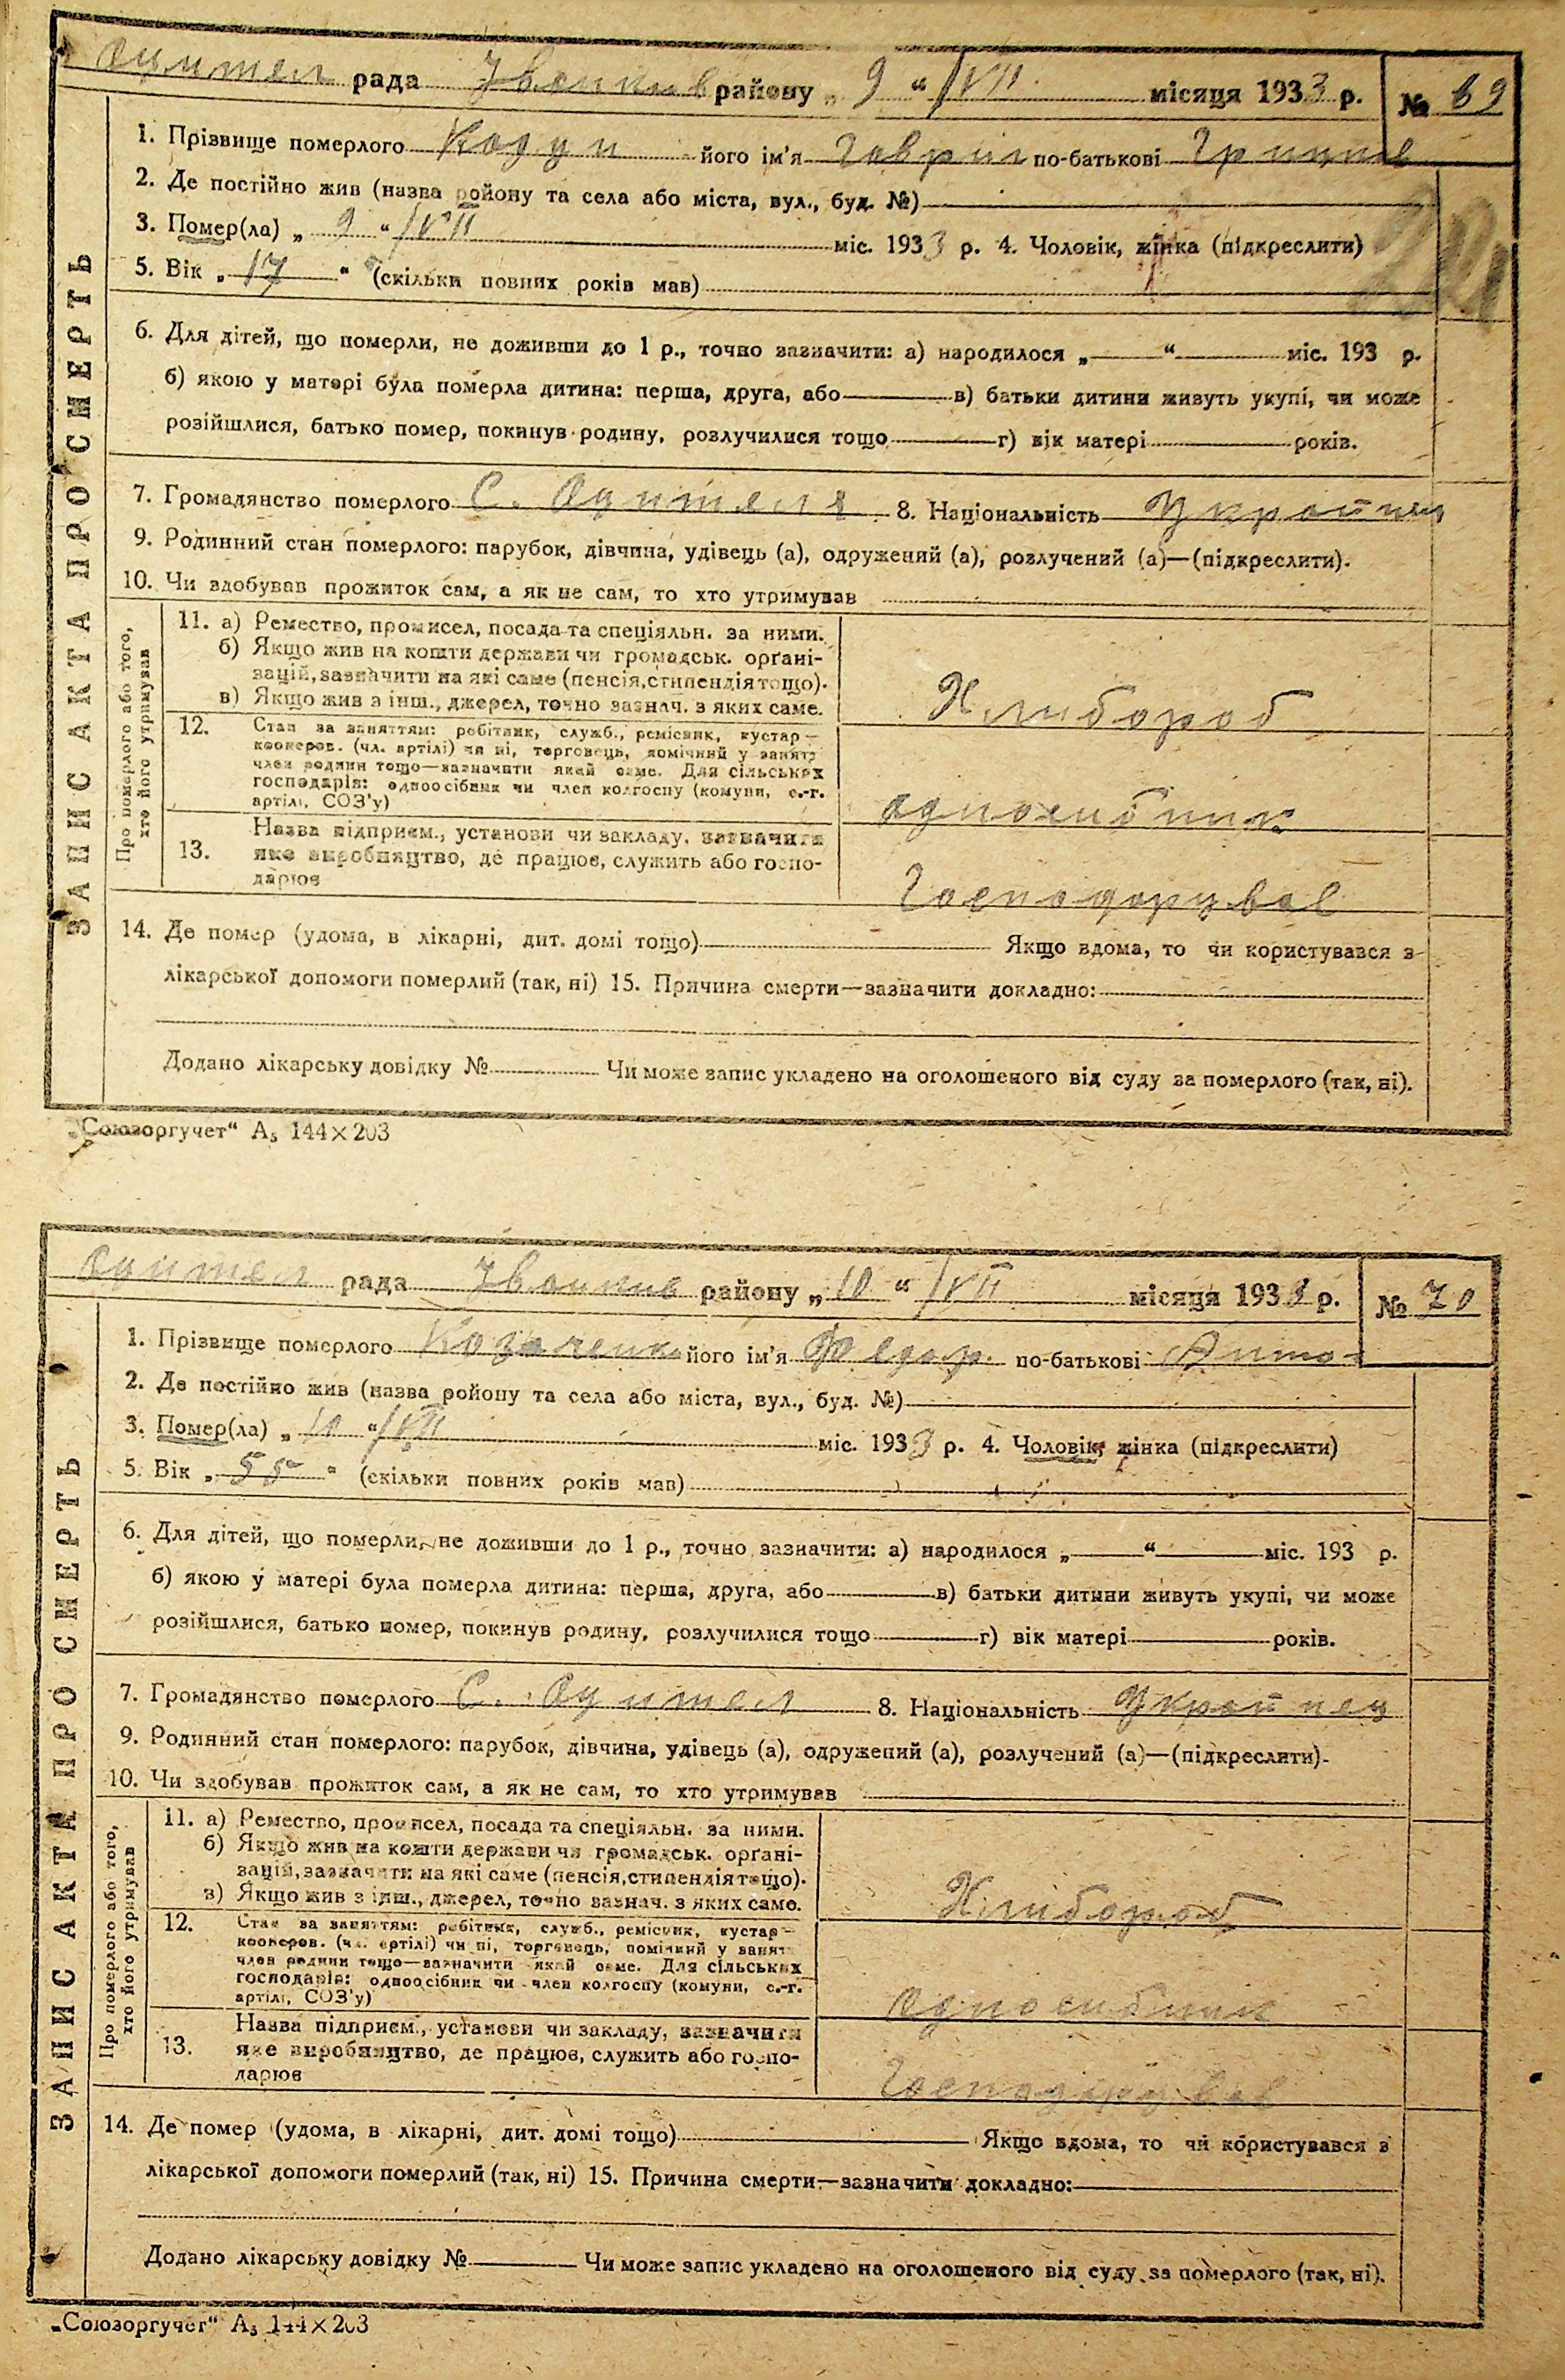 рада района „ 9 “ /VII місяця 1933 р. № 69
1. Прізвище померлого його ім'я Гаврил по-батькові Грицьків
2. Де постійно жив (назва ройону та села або міста, вул., буд. №)
3. Помер(ла) „ 9 “ /VII міс. 1933 р. 4. Чоловік, жінка (підкреслити)
5. Вік „ 17 “ (скільки повних років мав)
6. Для дітей, що померли, не доживши до 1 р., точно зазначити: а) народилося „ “ міс. 193 р.
б) якою у матері була померла дитина: перша, друга, або в) батьки дитини живуть укупі, чи може
розійшлися, батько помер, покинув родину, розлучилися тощо г) вік матері років.
7. Громадянство померлого С. 8. Національність Україпец
9. Родинний стан померлого: парубок, дівчина, удівець (а), одружений (а), розлучений (а)—(підкреслити).
10. Чи здобував прожиток сам, а як не сам, то хто утримував
ЗАПИС АКТА ПРО СМЕРТЬ
Про померлого або того,
хто його утримував
11. а) Ремество, промисел, посада та спеціяльн. за ними.
б) Якщо жив на кошти держави чи громадськ. орґані-
зацій, зазначити на які саме (пенсія, стипендія тощо).
в) Якщо жив з інш., джерел, точно зазнач. з яких саме.
Хлибороб
12. Стан за заняттям: робітник, служб., ремісник, кустар—
кооперов. (чл. артілі) чи ні, торговець, помічний у занят.
член родини тощо—зазначити який саме. Для сільських
господарів: одноосібник чи член колгоспу (комуни, с.-г.
артілі, СОЗ'у)
односибник
13. Назва підприєм., установи чи закладу, зазначити
яке виробництво, де працює, служить або госпо-
дарює
Господорував
14. Де помер (удома, в лікарні, дит. домі тощо) Якщо вдома, то чи користувався з
лікарської допомоги померлий (так, ні) 15. Причина смерти—зазначити докладно:
Додано лікарську довідку № Чи може запис укладено на оголошеного від суду за померлого (так, ні).
„Союзоргучет“ А₅ 144×203
рада району „ 10 “ /VII місяця 1933 р. № 70
1. Прізвище померлого Козаченко його ім'я Федор по-батькові Анто-
2. Де постійно жив (назва ройону та села або міста, вул., буд. №)
3. Помер(ла) „ 10 “ /VII міс. 1933 р. 4. Чоловік, жінка (підкреслити)
5. Вік „ 55 “ (скільки повних років мав)
6. Для дітей, що померли, не доживши до 1 р., точно зазначити: а) народилося „ “ міс. 193 р.
б) якою у матері була померла дитина: перша, друга, або в) батьки дитини живуть укупі, чи може
розійшлися, батько помер, покинув родину, розлучилися тощо г) вік матері років.
7. Громадянство померлого С. 8. Національність Україпец
9. Родинний стан померлого: парубок, дівчина, удівець (а), одружений (а), розлучений (а)—(підкреслити).
10. Чи здобував прожиток сам, а як не сам, то хто утримував
ЗАПИС АКТА ПРО СМЕРТЬ
Про померлого або того,
хто його утримував
11. а) Ремество, промисел, посада та спеціяльн. за ними.
б) Якщо жив на кошти держави чи громадськ. орґані-
зацій, зазначити на які саме (пенсія, стипендія тощо).
в) Якщо жив з інш., джерел, точно зазнач. з яких саме.
Хлибороб
12. Стан за заняттям: робітник, служб., ремісник, кустар—
кооперов. (чл. артілі) чи ні, торговець, помічний у занят.
член родини тощо—зазначити який саме. Для сільських
господарів: одноосібник чи член колгоспу (комуни, с.-г.
артілі, СОЗ'у)
односибник
13. Назва підприєм., установи чи закладу, зазначити
яке виробництво, де працює, служить або госпо-
дарює
Господорував
14. Де помер (удома, в лікарні, дит. домі тощо) Якщо вдома, то чи користувався з
лікарської допомоги померлий (так, ні) 15. Причина смерти—зазначити докладно:
Додано лікарську довідку № Чи може запис укладено на оголошеного від суду за померлого (так, ні).
„Союзоргучет“ А₅ 144×203